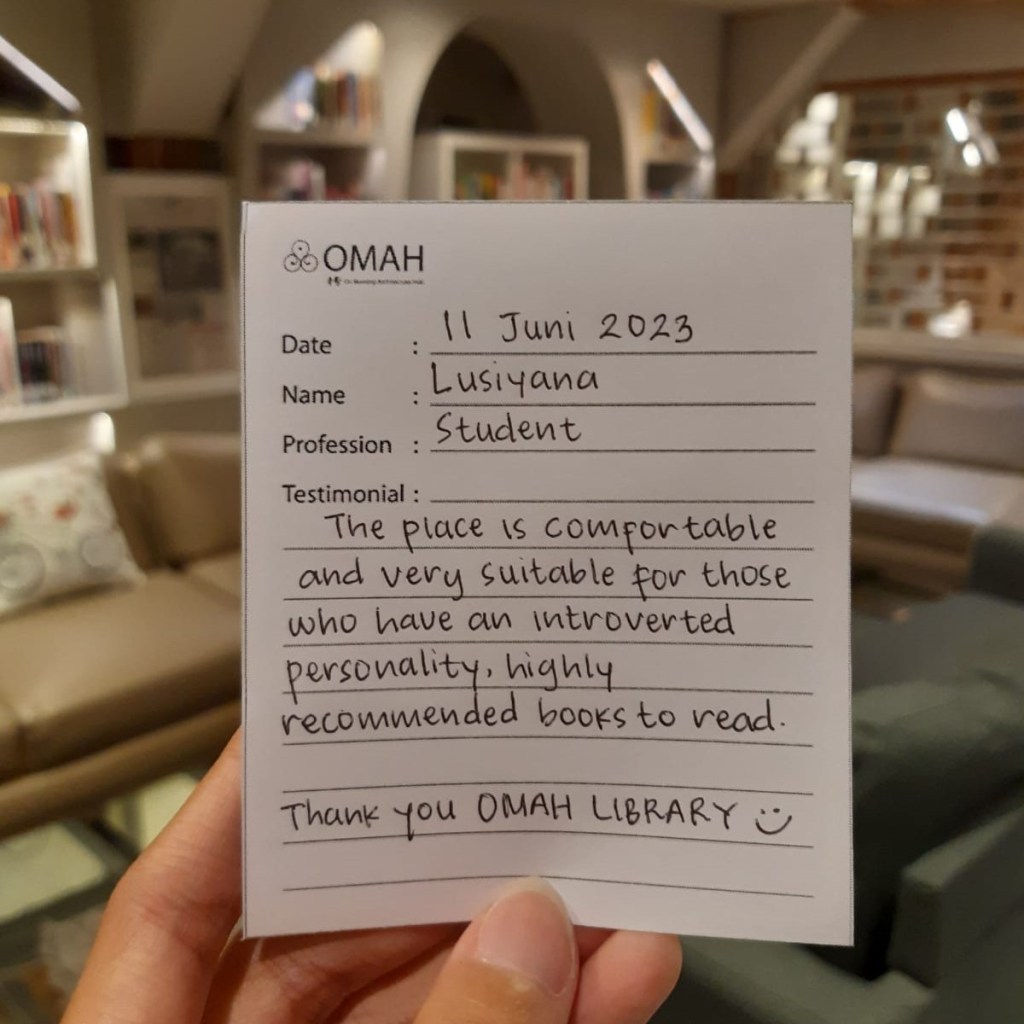 OMAH
Date : 11 Juni 2023
Name : Lusiyana
Profession : Student
Testimonial :
The place is comfortable
and very suitable for those
who have an introverted
personality, highly
recommended books to read.
Thank you OMAH LIBRARY :)